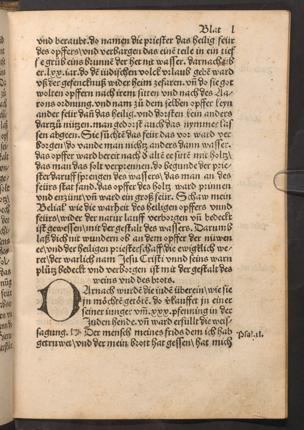 Blat l
vnd beraubt. do namen die priester das heilig feür
des opffers/ vnd verbargen das eine teile in ein tief
fe grůb eins brunnē der het nit wasser. darnach üb
er. lxx. iar. do dē iüdischen volck vrlaub gebē ward
vß der gefencknuß wider heim zefaren. vñ do sie got
wolten opffern nach irem sitten vnd nach des Aa-
rons ordnung. vnd nam zů dem selben opffer keyn
ander feür dañ das heilig. vnd dorsten kein anders
dartzů nützen. man gedorst auch das nymmer las
sen abgeen. Sie sůchtē das feür das vor ward ver
borgen/ do vande man nichtz anders dann wasser.
das opffer ward bereit nach ð alte ē sitte mit holtz/
das man das solt verprennen. do begunde der prie-
ster daruff sprengen des wassers/ das man an des
feürs stat fand. das opffer des holtz ward prinnen
vnd enzünt/ vñ ward ein groß feür. Schaw mein
Belial wie die warheit des heiligen opffers vnnd
feürs/ wider der natur lauff verborgen vñ bedeckt
ist gewesen/ mit der gestalt des wassers. Darumb
laß dich nit wundern ob an dem opffer der nüwen
ee/ vnd der heiligen priesterschafft die ewigklich we-
ret/ der warlich nam Jesu Cristi vnnd seins warn
plůtz bedeckt vnd verborgen ist mit der gestalt des
weins vnd des brots.
DArnach wurdē die iudē überein/ wie sie
jn möchtē getötē. do v̈kaufft jn einer
seiner iunger vm̄. xxx. pfenning in der
Juden hende. vñ ward erfüllt die weis-
sagung. Der mensch meines frids dem ich hab
getruwet/ vnd der mein brott hat gessen/ hat mich
Psal. xl.